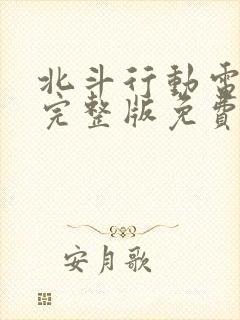 北斗行動電
完整版免費
安月歌